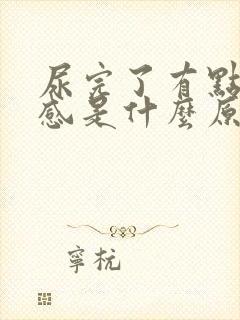 尿完了有點
感是什麼原
寧杬